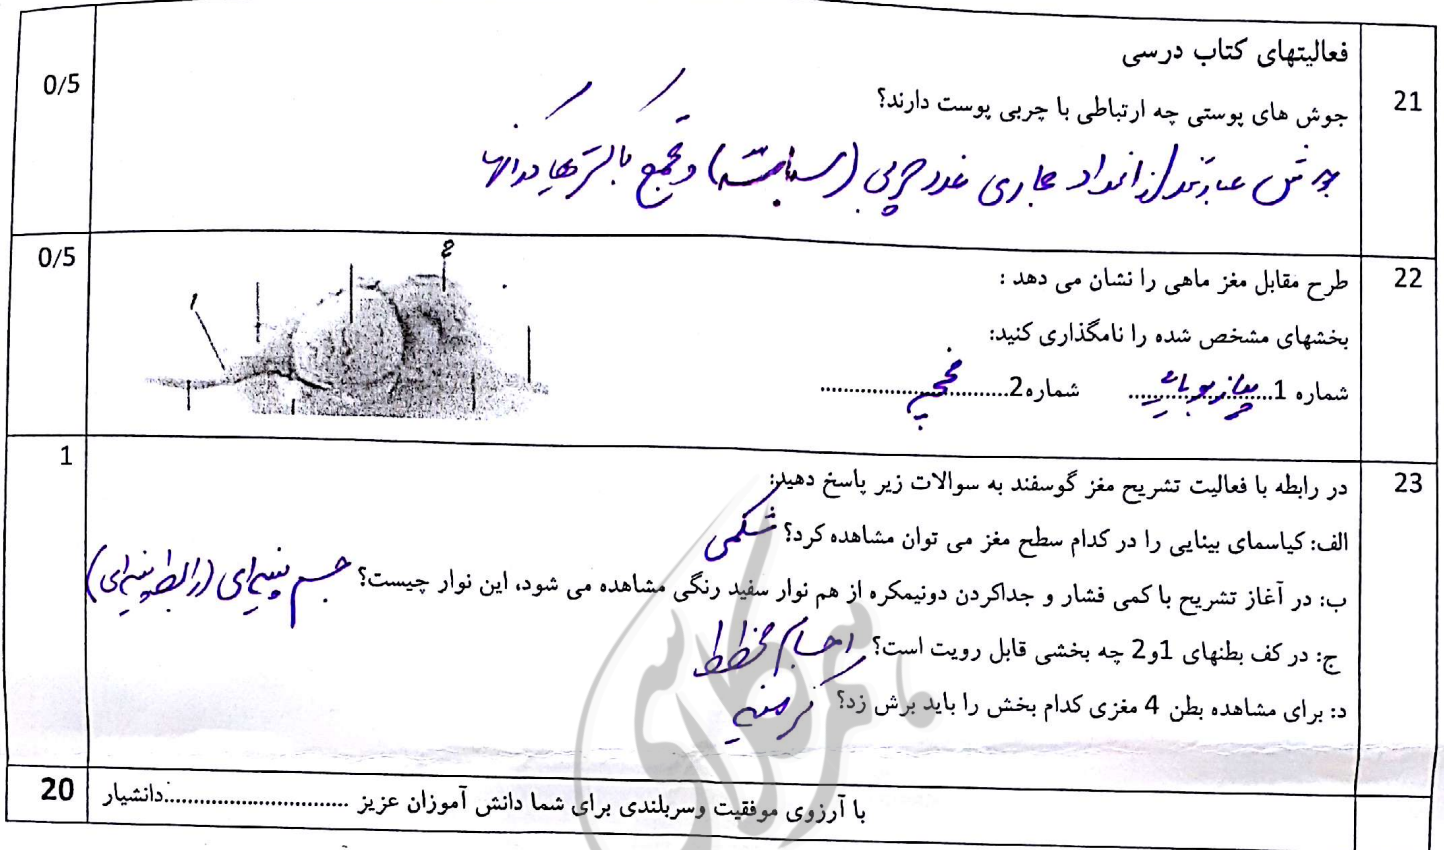 فعالیتهای کتاب درسی
21
0/5
جوش های پوستی چه ارتباطی با چربی پوست دارند؟
جوش عبارتند از انسداد مجاری غدد چربی (سباسه) و تجمع باکتریها در آنها
22
0/5
طرح مقابل مغز ماهی را نشان می دهد :
بخشهای مشخص شده را نامگذاری کنید:
شماره 1.......پیاز بویایی....... شماره2.......مخچه.......
1
2
23
1
در رابطه با فعالیت تشریح مغز گوسفند به سوالات زیر پاسخ دهید:
الف: کیاسمای بینایی را در کدام سطح مغز می توان مشاهده کرد؟ شکمی
ب: در آغاز تشریح با کمی فشار و جداکردن دونیمکره از هم نوار سفید رنگی مشاهده می شود، این نوار چیست؟ جسم پینه‌ای (رابط پینه‌ای)
ج: در کف بطنهای 1و2 چه بخشی قابل رویت است؟ اجسام مخطط
د: برای مشاهده بطن 4 مغزی کدام بخش را باید برش زد؟ کرمینه
با آرزوی موفقیت وسربلندی برای شما دانش آموزان عزیز ..............................:دانشیار
20